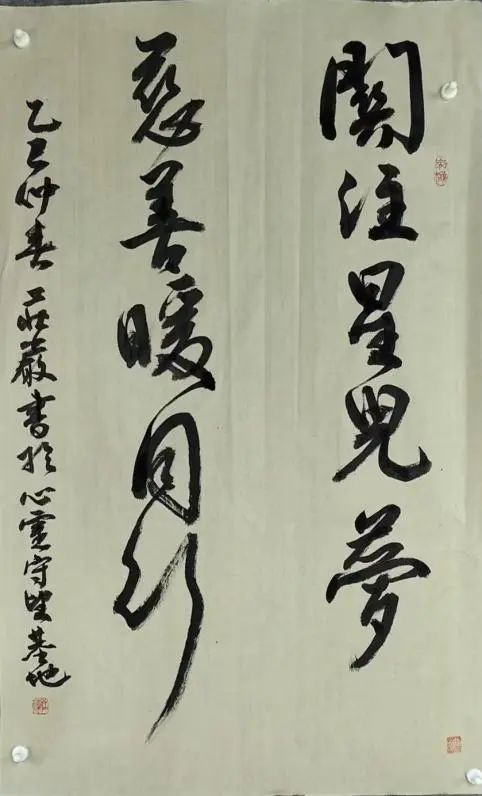 關注星兒夢
慈善暖同行
乙巳仲春莊嚴書於心靈守望基地